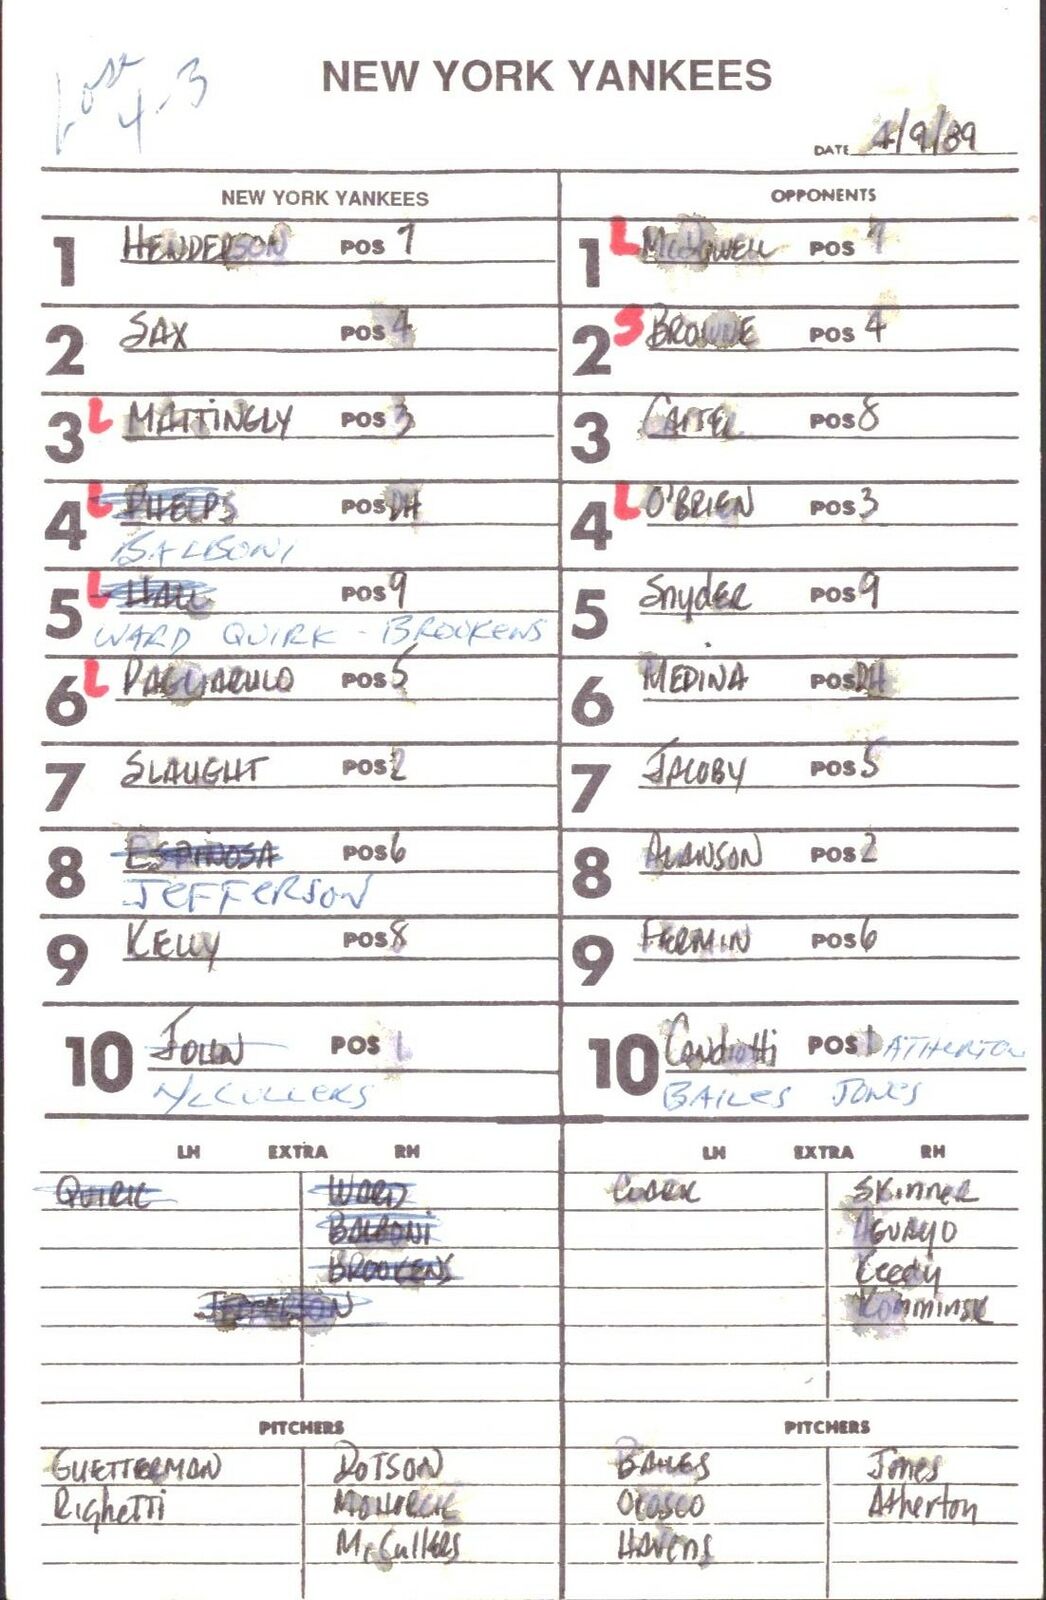 Lost
4-3
NEW YORK YANKEES
DATE 4/9/89
NEW YORK YANKEES
OPPONENTS
1 HENDERSON POS 7
1 L McDOWELL POS 7
2 SAX POS 4
2 S BROWNE POS 4
3 L MATTINGLY POS 3
3 CARTER POS 8
4 L PHELPS POS DH
BALBONI
4 L O'BRIEN POS 3
5 L HALL POS 9
WARD QUIRK - BROOKENS
5 Snyder POS 9
6 L PAGLIARULO POS 5
6 MEDINA POS DH
7 SLAUGHT POS 2
7 JACOBY POS 5
8 ESPINOSA POS 6
JEFFERSON
8 ALLANSON POS 2
9 KELLY POS 8
9 FERMIN POS 6
10 JOHN POS 1
McCULLERS
10 Candiotti POS 1 ATHERTON
BAILES JONES
LH EXTRA RH
LH EXTRA RH
QUIRK WARD
CLARK SKINNER
BALBONI
AGUAYO
BROOKENS
Keedy
JEFFERSON
Komminsk
PITCHERS
PITCHERS
GUETTERMAN DOTSON
BAILES Jones
Righetti MOHORCIC
OROSCO Atherton
McCullers
HAVENS